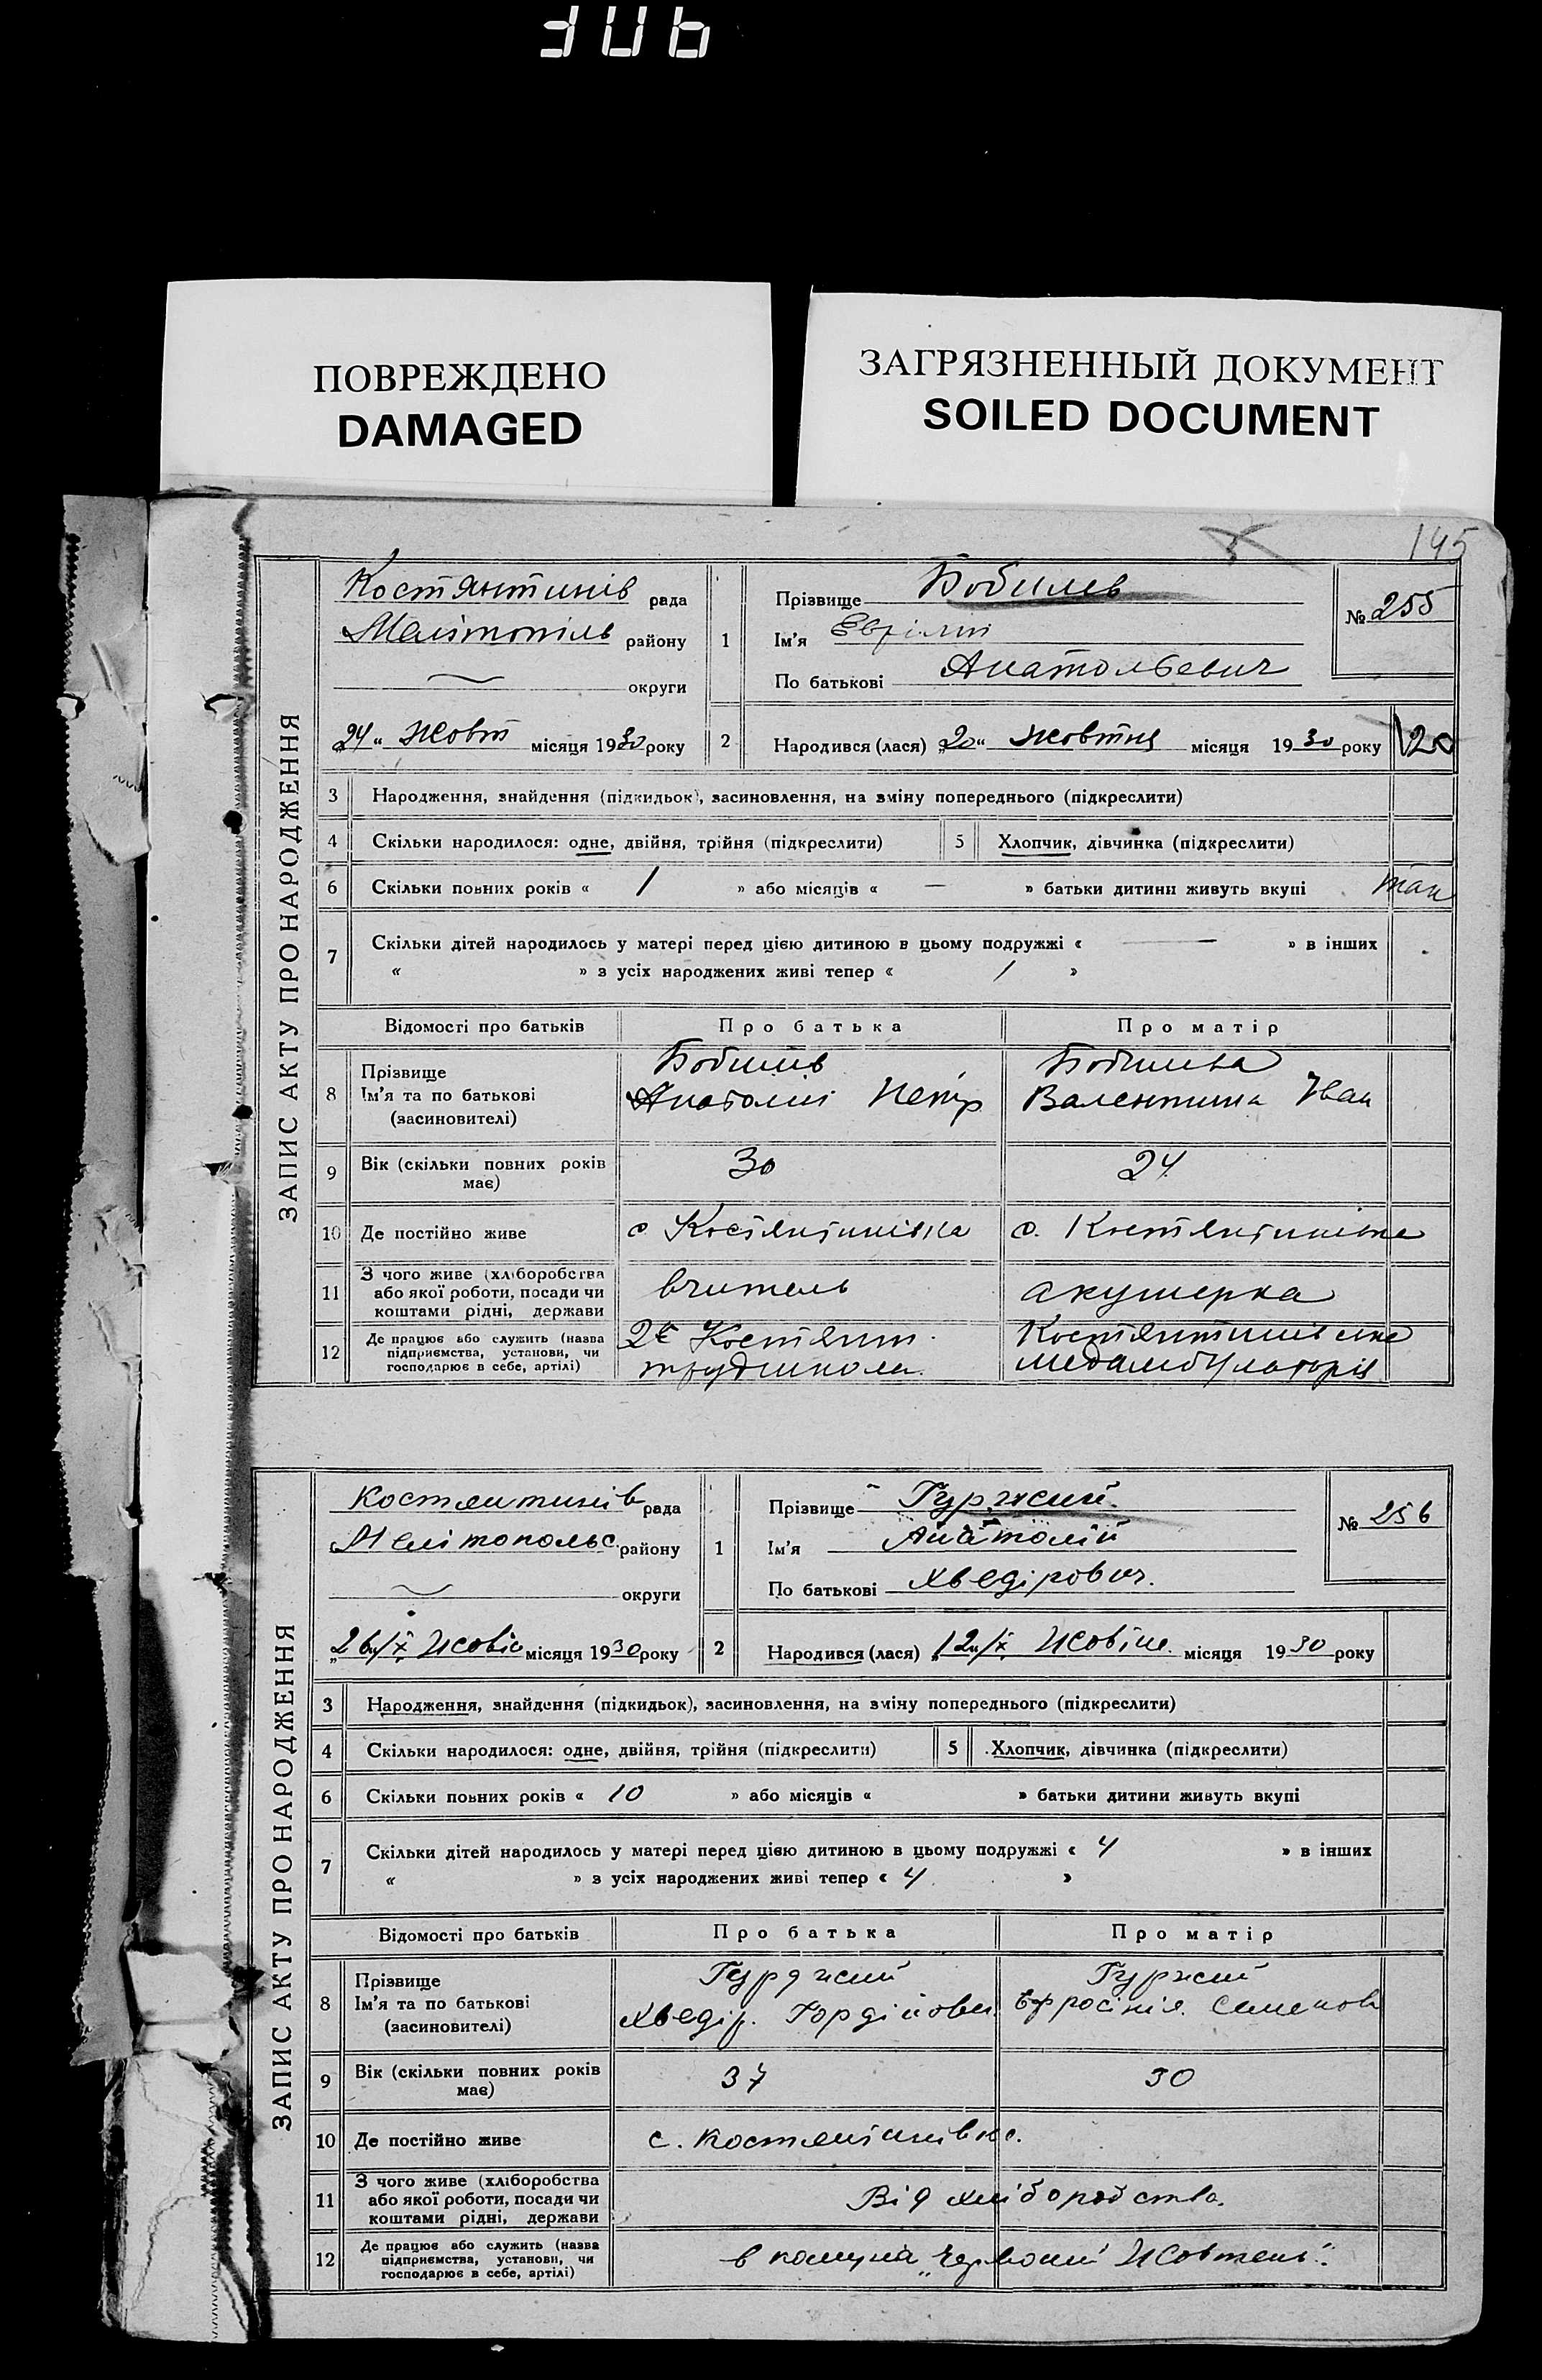 ПОВРЕЖДЕНО
DAMAGED
ЗАГРЯЗНЕННЫЙ ДОКУМЕНТ
SOILED DOCUMENT
145
ЗАПИС АКТУ ПРО НАРОДЖЕННЯ
Костянтинів рада
Мелітопіль району
округи
1 Прізвище Бобилев
Ім'я
По батькові Анатольевич
№ 255
„24“ жовт місяця 1930 року
2 Народився (лася) „20“ жовтня місяця 1930 року
20
3 Народження, знайдення (підкидьок), засиновлення, на зміну попереднього (підкреслити)
4 Скільки народилося: одне, двійня, трійня (підкреслити) 5 Хлопчик, дівчинка (підкреслити)
6 Скільки повних років « 1 » або місяців « — » батьки дитини живуть вкупі так
7 Скільки дітей народилось у матері перед цією дитиною в цьому подружжі « — » в інших
« » з усіх народжених живі тепер « 1 »
Відомості про батьків Про батька Про матір
8 Прізвище
Ім'я та по батькові
(засиновителі)
Бобилів
Анатолій Петр
Бобилева
Валентина Іван
9 Вік (скільки повних років
має) 30 24
10 Де постійно живе с. Костянтинівка с. Костянтинівка
11 З чого живе (хліборобства
або якої роботи, посади чи
коштами рідні, держави
вчитель акушерка
12 Де працює або служить (назва
підприємства, установи, чи
господарює в себе, артілі)
2й Костянт.
трудшкола.
Костянтинівська
медамбулаторія
ЗАПИС АКТУ ПРО НАРОДЖЕННЯ
Костянтинів рада
Мелітопольс. району
округи
1 Прізвище Гуржий
Ім'я Анатолій
По батькові Хведірович.
№ 256
„26“/X місяця 1930 року
2 Народився (лася) „12“/X місяця 1930 року
3 Народження, знайдення (підкидьок), засиновлення, на зміну попереднього (підкреслити)
4 Скільки народилося: одне, двійня, трійня (підкреслити) 5 Хлопчик, дівчинка (підкреслити)
6 Скільки повних років « 10 » або місяців « » батьки дитини живуть вкупі
7 Скільки дітей народилось у матері перед цією дитиною в цьому подружжі « 4 » в інших
« » з усіх народжених живі тепер « 4 »
Відомості про батьків Про батька Про матір
8 Прізвище
Ім'я та по батькові
(засиновителі)
Гурджий
Хведір. Гордійович
Гуржий
Ефросінія. Семенов
9 Вік (скільки повних років
має) 37 30
10 Де постійно живе с. Костянтинівка.
11 З чого живе (хліборобства
або якої роботи, посади чи
коштами рідні, держави
Від хліборобства.
12 Де працює або служить (назва
підприємства, установи, чи
господарює в себе, артілі)
в комуна „Червоний Жовтень“.